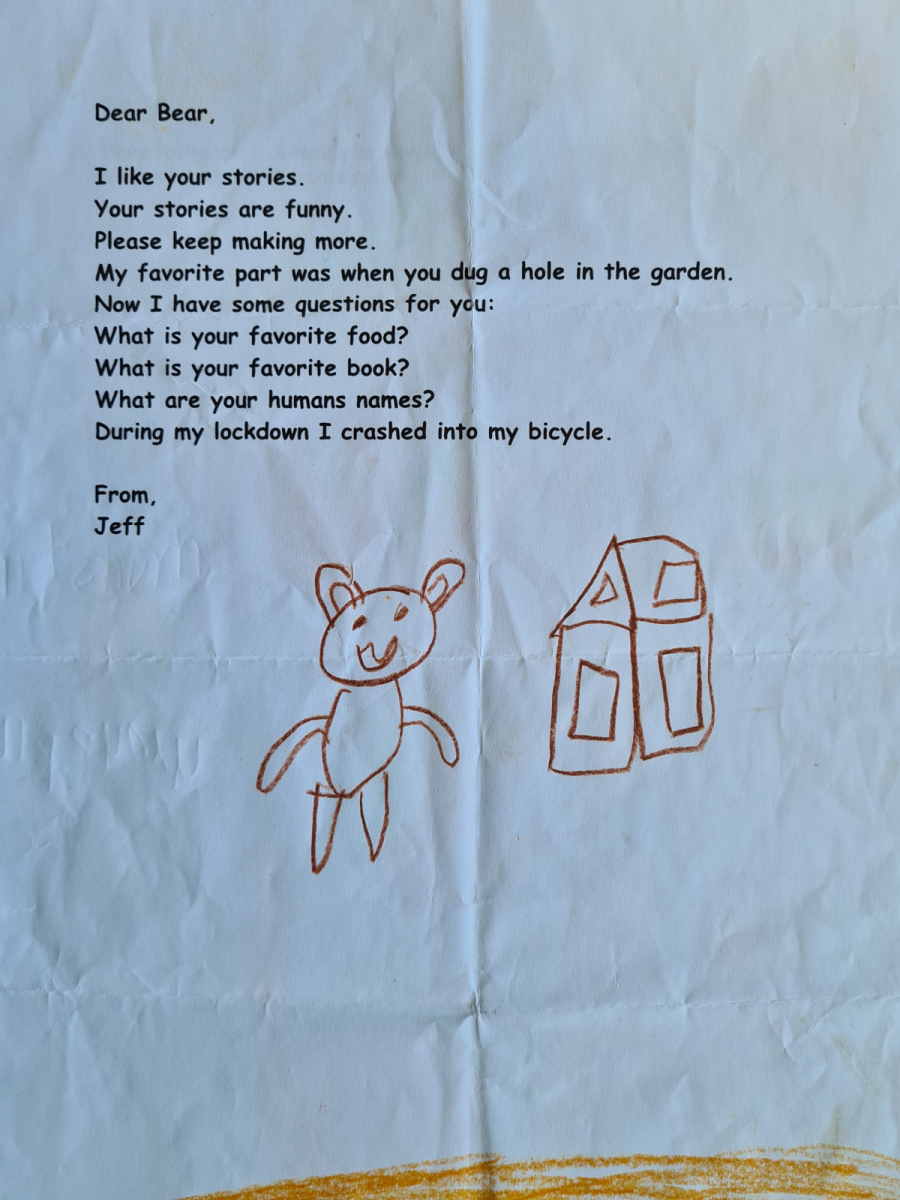 Dear Bear,
I like your stories.
Your stories are funny.
Please keep making more.
My favorite part was when you dug a hole in the garden.
Now I have some questions for you:
What is your favorite food?
What is your favorite book?
What are your humans names?
During my lockdown I crashed into my bicycle.
From,
Jeff